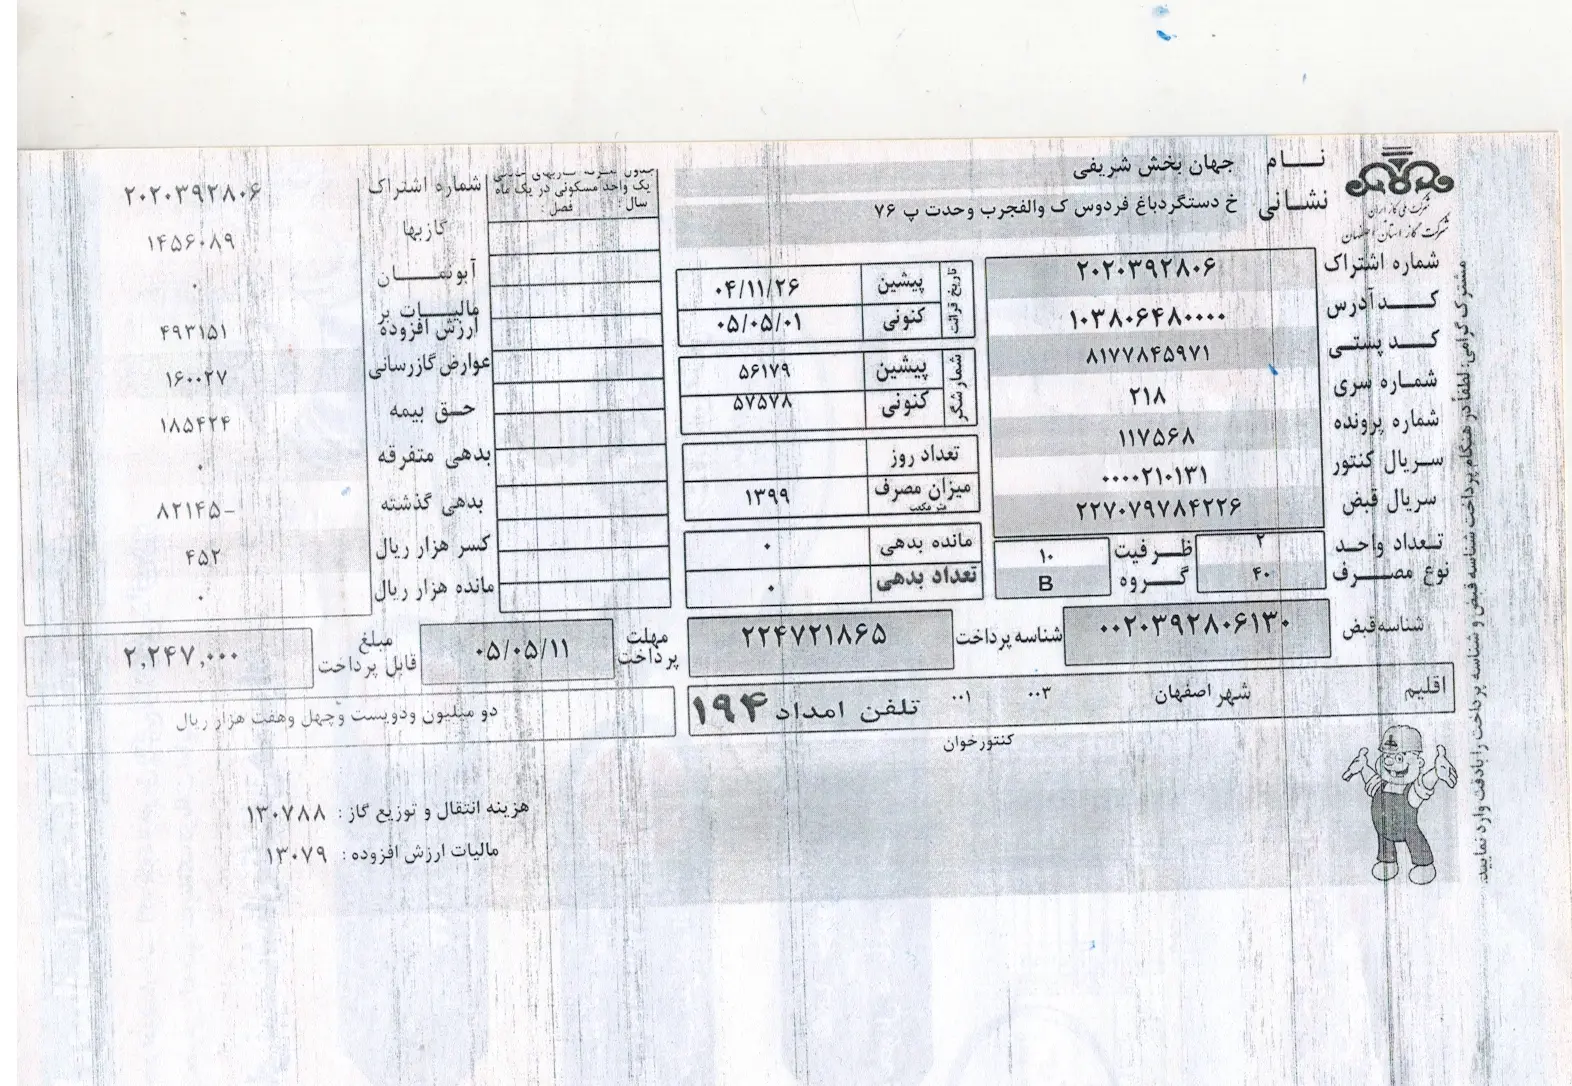 نام جهان بخش شریفی
نشانی خ دستگردباغ فردوس ک والفجرب وحدت پ ۷۶
شرکت ملی گاز ایران
شرکت گاز استان اصفهان
شماره اشتراک ۲۰۲۰۳۹۲۸۰۶
کد آدرس ۱۰۳۸۰۶۴۸۰۰۰۰
کد پستی ۸۱۷۷۸۴۵۹۷۱
شماره سری ۲۱۸
شماره پرونده ۱۱۷۵۶۸
سریال کنتور ۰۰۰۰۲۱۰۱۳۱
سریال قبض ۲۲۷۰۷۹۷۸۴۲۲۶
تعداد واحد ۲ ظرفیت ۱۰
نوع مصرف ۴۰ گروه B
شناسه قبض ۰۰۲۰۳۹۲۸۰۶۱۳۰
تاریخ قرائت
پیشین ۰۴/۱۱/۲۶
کنونی ۰۵/۰۵/۰۱
شمارشگر
پیشین ۵۶۱۷۹
کنونی ۵۷۵۷۸
تعداد روز
میزان مصرف ۱۳۹۹
متر مکعب
مانده بدهی ۰
تعداد بدهی ۰
شناسه پرداخت ۲۲۴۷۲۱۸۶۵
یک واحد مسکونی در یک ماه
سال: فصل:
شماره اشتراک ۲۰۲۰۳۹۲۸۰۶
گازبها ۱۴۵۶۰۸۹
آبونمان ۰
مالیات بر
ارزش افزوده ۴۹۳۱۵۱
عوارض گازرسانی ۱۶۰۰۲۷
حق بیمه ۱۸۵۴۲۴
بدهی متفرقه ۰
بدهی گذشته ۸۲۱۴۵-
کسر هزار ریال ۴۵۲
مانده هزار ریال ۰
مهلت پرداخت ۰۵/۰۵/۱۱
مبلغ قابل پرداخت ۲,۲۴۷,۰۰۰
اقلیم شهر اصفهان ۰۰۳ ۰۰۱ تلفن امداد ۱۹۴
دو میلیون ودویست وچهل وهفت هزار ریال
کنتورخوان
هزینه انتقال و توزیع گاز: ۱۳۰۷۸۸
مالیات ارزش افزوده: ۱۳۰۷۹
مشترک گرامی: لطفاً در هنگام پرداخت شناسه قبض و شناسه پرداخت را بادقت وارد نمایید.